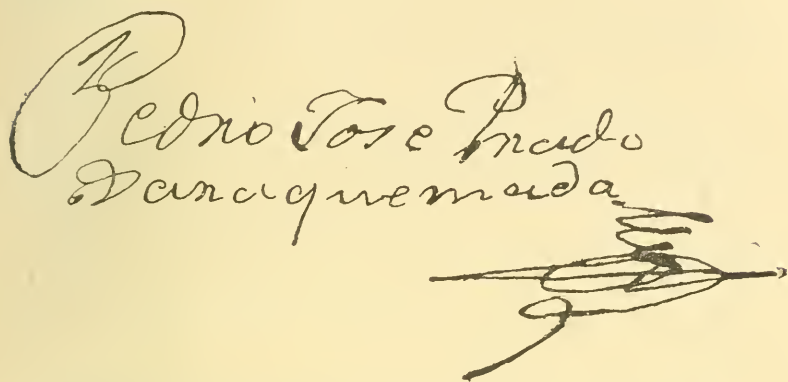 Pedro Jose Prado
Jaraquemada